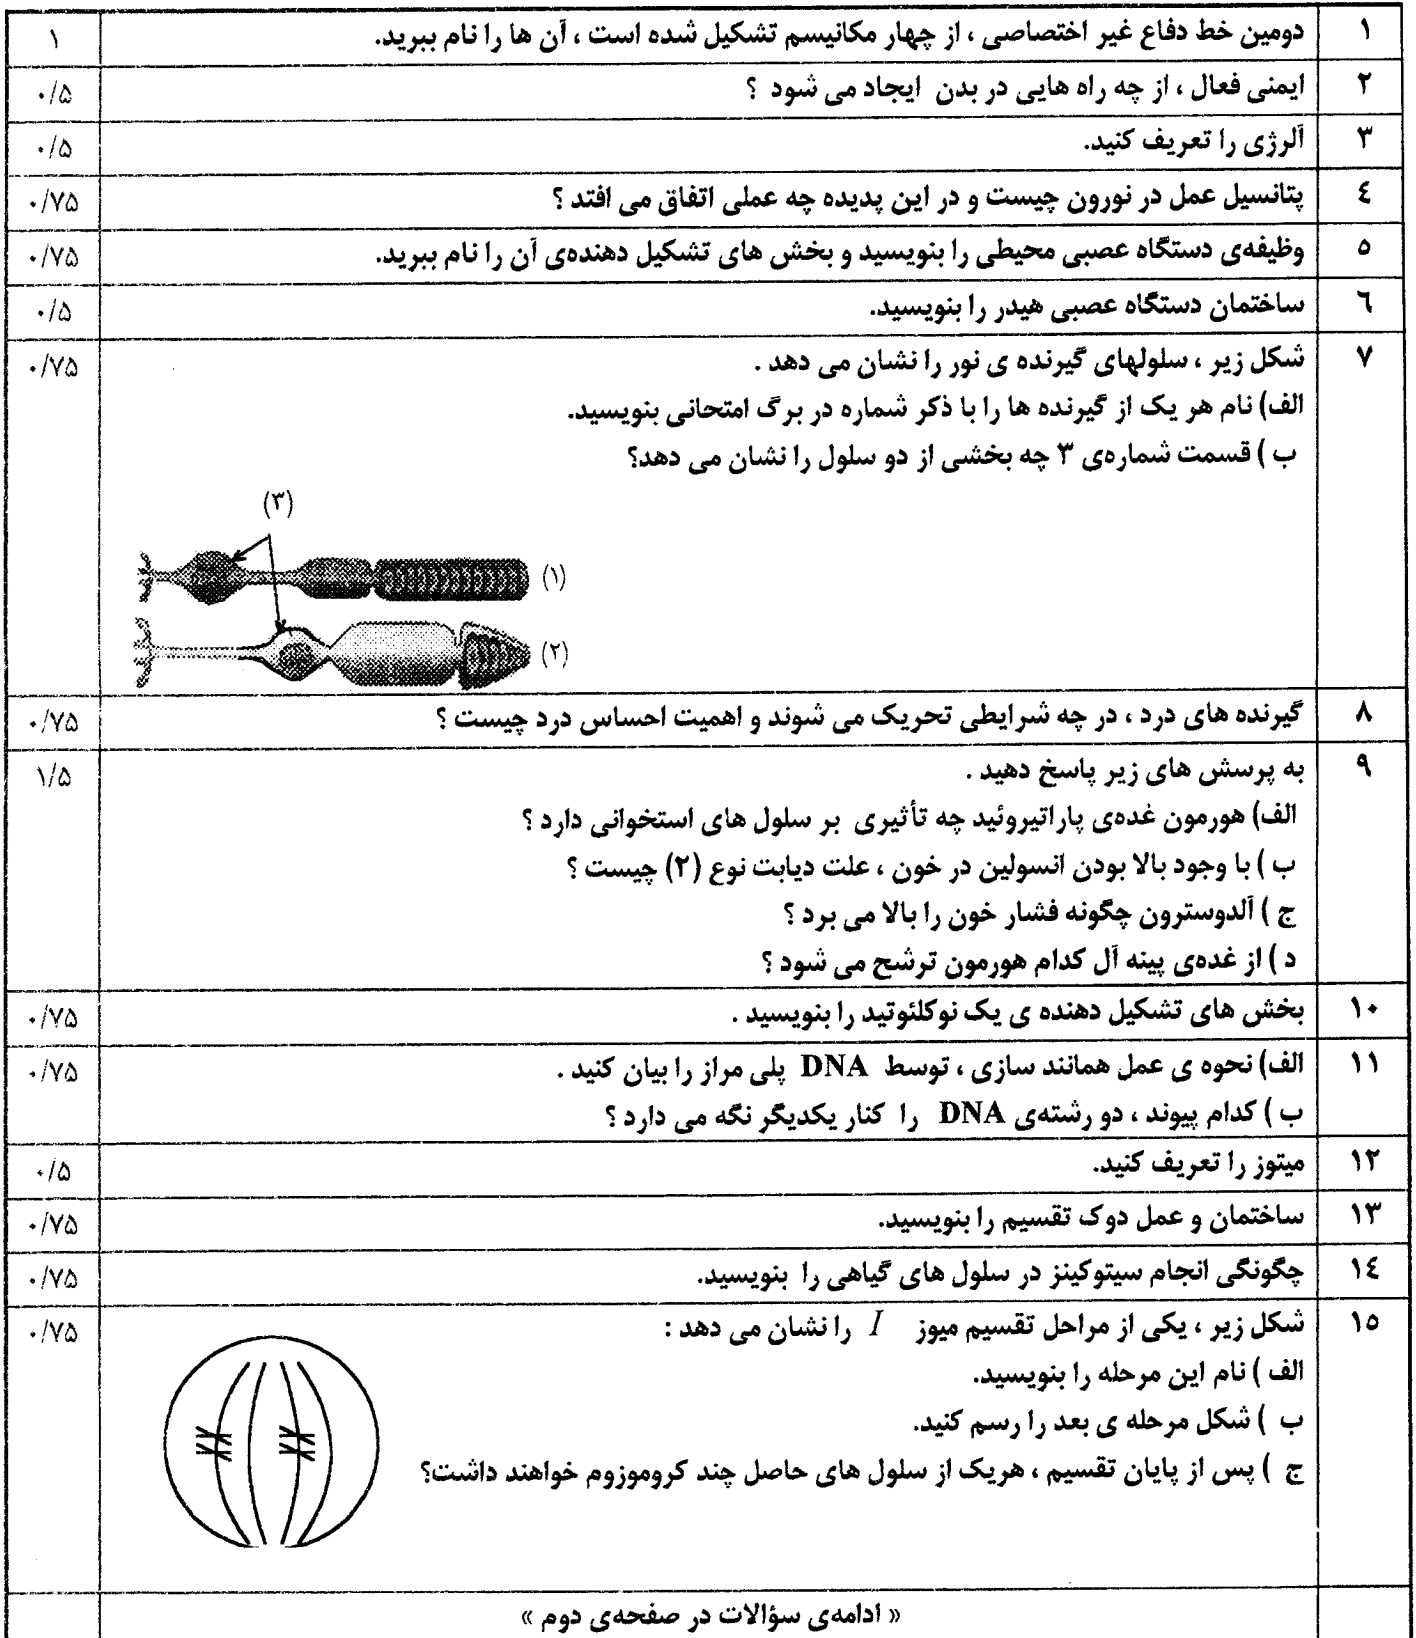 ۱ دومین خط دفاع غیر اختصاصی ، از چهار مکانیسم تشکیل شده است ، آن ها را نام ببرید. ۱
۲ ایمنی فعال ، از چه راه هایی در بدن ایجاد می شود ؟ ۰/۵
۳ آلرژی را تعریف کنید. ۰/۵
٤ پتانسیل عمل در نورون چیست و در این پدیده چه عملی اتفاق می افتد ؟ ۰/۷۵
٥ وظیفه‌ی دستگاه عصبی محیطی را بنویسید و بخش های تشکیل دهنده‌ی آن را نام ببرید. ۰/۷۵
٦ ساختمان دستگاه عصبی هیدر را بنویسید. ۰/۵
۷ شکل زیر ، سلولهای گیرنده ی نور را نشان می دهد . ۰/۷۵
الف) نام هر یک از گیرنده ها را با ذکر شماره در برگ امتحانی بنویسید.
ب ) قسمت شماره‌ی ۳ چه بخشی از دو سلول را نشان می دهد؟
(۳)
(۱)
(۲)
۸ گیرنده های درد ، در چه شرایطی تحریک می شوند و اهمیت احساس درد چیست ؟ ۰/۷۵
۹ به پرسش های زیر پاسخ دهید . ۱/۵
الف) هورمون غده‌ی پاراتیروئید چه تأثیری بر سلول های استخوانی دارد ؟
ب ) با وجود بالا بودن انسولین در خون ، علت دیابت نوع (۲) چیست ؟
ج ) آلدوسترون چگونه فشار خون را بالا می برد ؟
د ) از غده‌ی پینه آل کدام هورمون ترشح می شود ؟
۱۰ بخش های تشکیل دهنده ی یک نوکلئوتید را بنویسید . ۰/۷۵
۱۱ الف) نحوه ی عمل همانند سازی ، توسط DNA پلی مراز را بیان کنید . ۰/۷۵
ب ) کدام پیوند ، دو رشته‌ی DNA را کنار یکدیگر نگه می دارد ؟
۱۲ میتوز را تعریف کنید. ۰/۵
۱۳ ساختمان و عمل دوک تقسیم را بنویسید. ۰/۷۵
۱٤ چگونگی انجام سیتوکینز در سلول های گیاهی را بنویسید. ۰/۷۵
۱٥ شکل زیر ، یکی از مراحل تقسیم میوز I را نشان می دهد : ۰/۷۵
الف ) نام این مرحله را بنویسید.
ب ) شکل مرحله ی بعد را رسم کنید.
ج ) پس از پایان تقسیم ، هریک از سلول های حاصل چند کروموزوم خواهند داشت؟
« ادامه‌ی سؤالات در صفحه‌ی دوم »